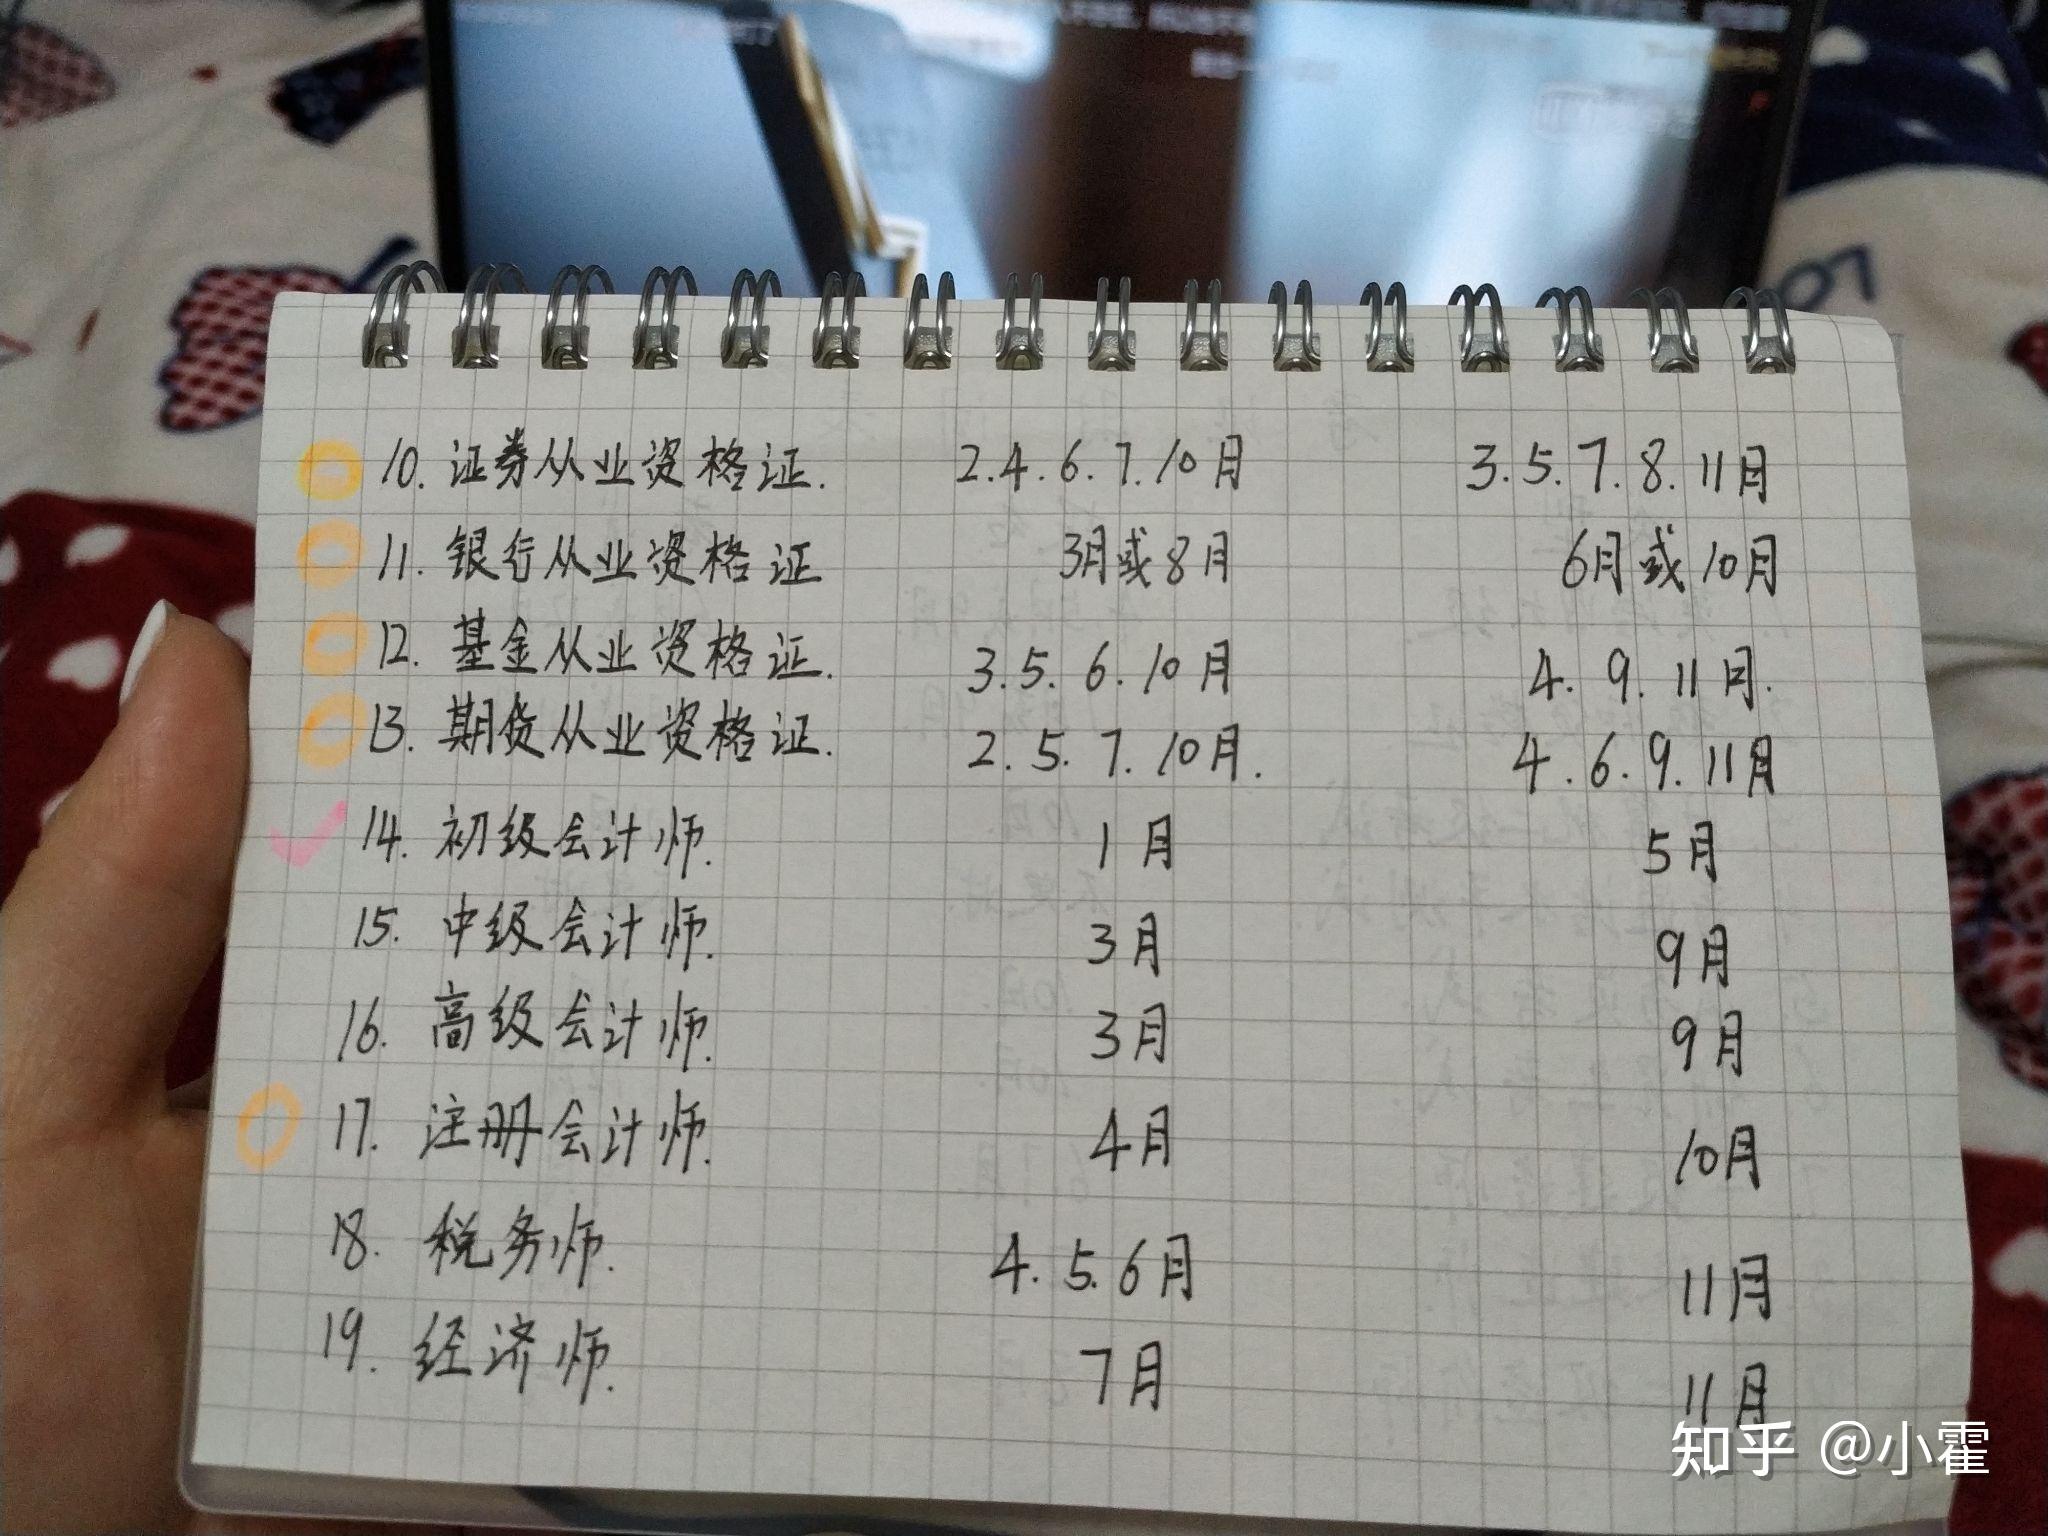 10. 证券从业资格证. 2.4.6.7.10月 3.5.7.8.11月
11. 银行从业资格证 3月或8月 6月或10月
12. 基金从业资格证. 3.5.6.10月 4.9.11月.
13. 期货从业资格证. 2.5.7.10月. 4.6.9.11月
14. 初级会计师. 1月 5月
15. 中级会计师. 3月 9月
16. 高级会计师. 3月 9月
17. 注册会计师. 4月 10月
18. 税务师. 4.5.6月 11月
19. 经济师. 7月 11月
知乎 @小霍